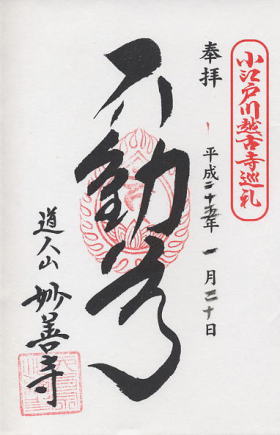 小江戸川越古寺巡礼
奉拝 平成二十五年 一月二十日
不動尊
道人山 妙善寺